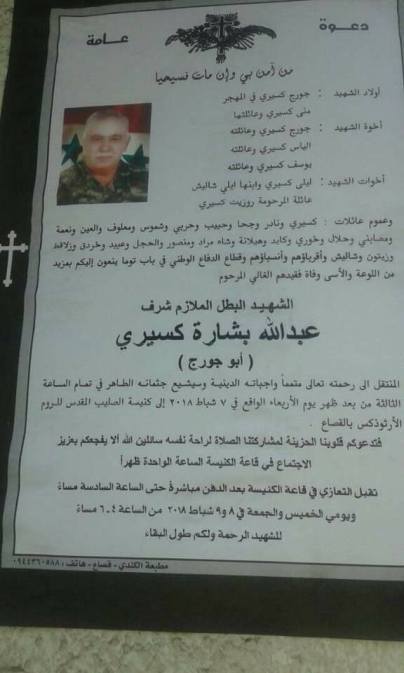 دعوة عامة
من آمن بي وإن مات فسيحيا
أولاد الشهيد : جورج كسيري في المهجر
منى كسيري وعائلتها
أخوة الشهيد : جورج كسيري وعائلته
الياس كسيري وعائلته
يوسف كسيري وعائلته
أخوات الشهيد : ليلى كسيري وابنها ايلي شاليش
عائلة المرحومة روزيت كسيري
وعموم عائلات : كسيري ونادر وجحا وحبيب وحربي وشموس ومعلوف والعين ونعمة
ومصابني وحلال وخوري وكابد وهيلانة وشاه مراد ومنصور والحجل وعبيد وخردق وزلاقط
وزيتون وشاليش وأقرباؤهم وأنسباؤهم وقطاع الدفاع الوطني في باب توما ينعون إليكم بمزيد
من اللوعة والأسى وفاة فقيدهم الغالي المرحوم
الشهيد البطل الملازم شرف
عبدالله بشارة كسيري
( أبو جورج )
المنتقل الى رحمته تعالى متمماً واجباته الدينية وسيشيع جثمانه الطاهر في تمام الساعة
الثالثة من بعد ظهر يوم الأربعاء الواقع في ٧ شباط ٢٠١٨ إلى كنيسة الصليب المقدس للروم
الأرثوذكس بالقصاع .
فتدعوكم قلوبنا الحزينة لمشاركتنا الصلاة لراحة نفسه سائلين الله ألا يفجعكم بعزيز
الاجتماع في قاعة الكنيسة الساعة الواحدة ظهراً
تقبل التعازي في قاعة الكنيسة بعد الدفن مباشرة حتى الساعة السادسة مساءً
ويومي الخميس والجمعة في ٨ و ٩ شباط ٢٠١٨ من الساعة ٤ - ٦ مساءً
للشهيد الرحمة ولكم طول البقاء
مطبعة الكندي - قصاع - هاتف : ٠٩٤٤٣٦٠٥٨٨